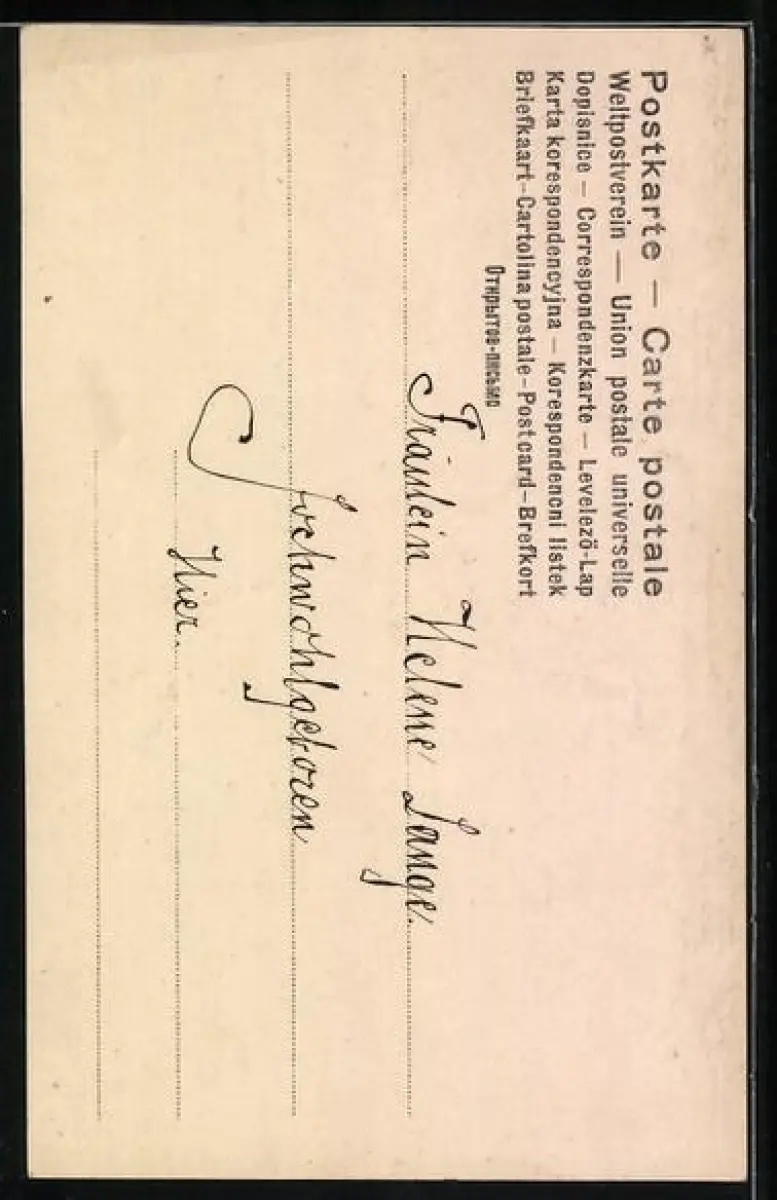 Postkarte — Carte postale
Weltpostverein — Union postale universelle
Dopisnice — Correspondenzkarte — Levelező-Lap
Karta korespondencyjna — Korespondencni listek
Briefkaart-Cartolina postale-Postcard-Brefkort
Открытое-письмо
Fräulein Helene Lange.
Hochwohlgeboren
Hier.